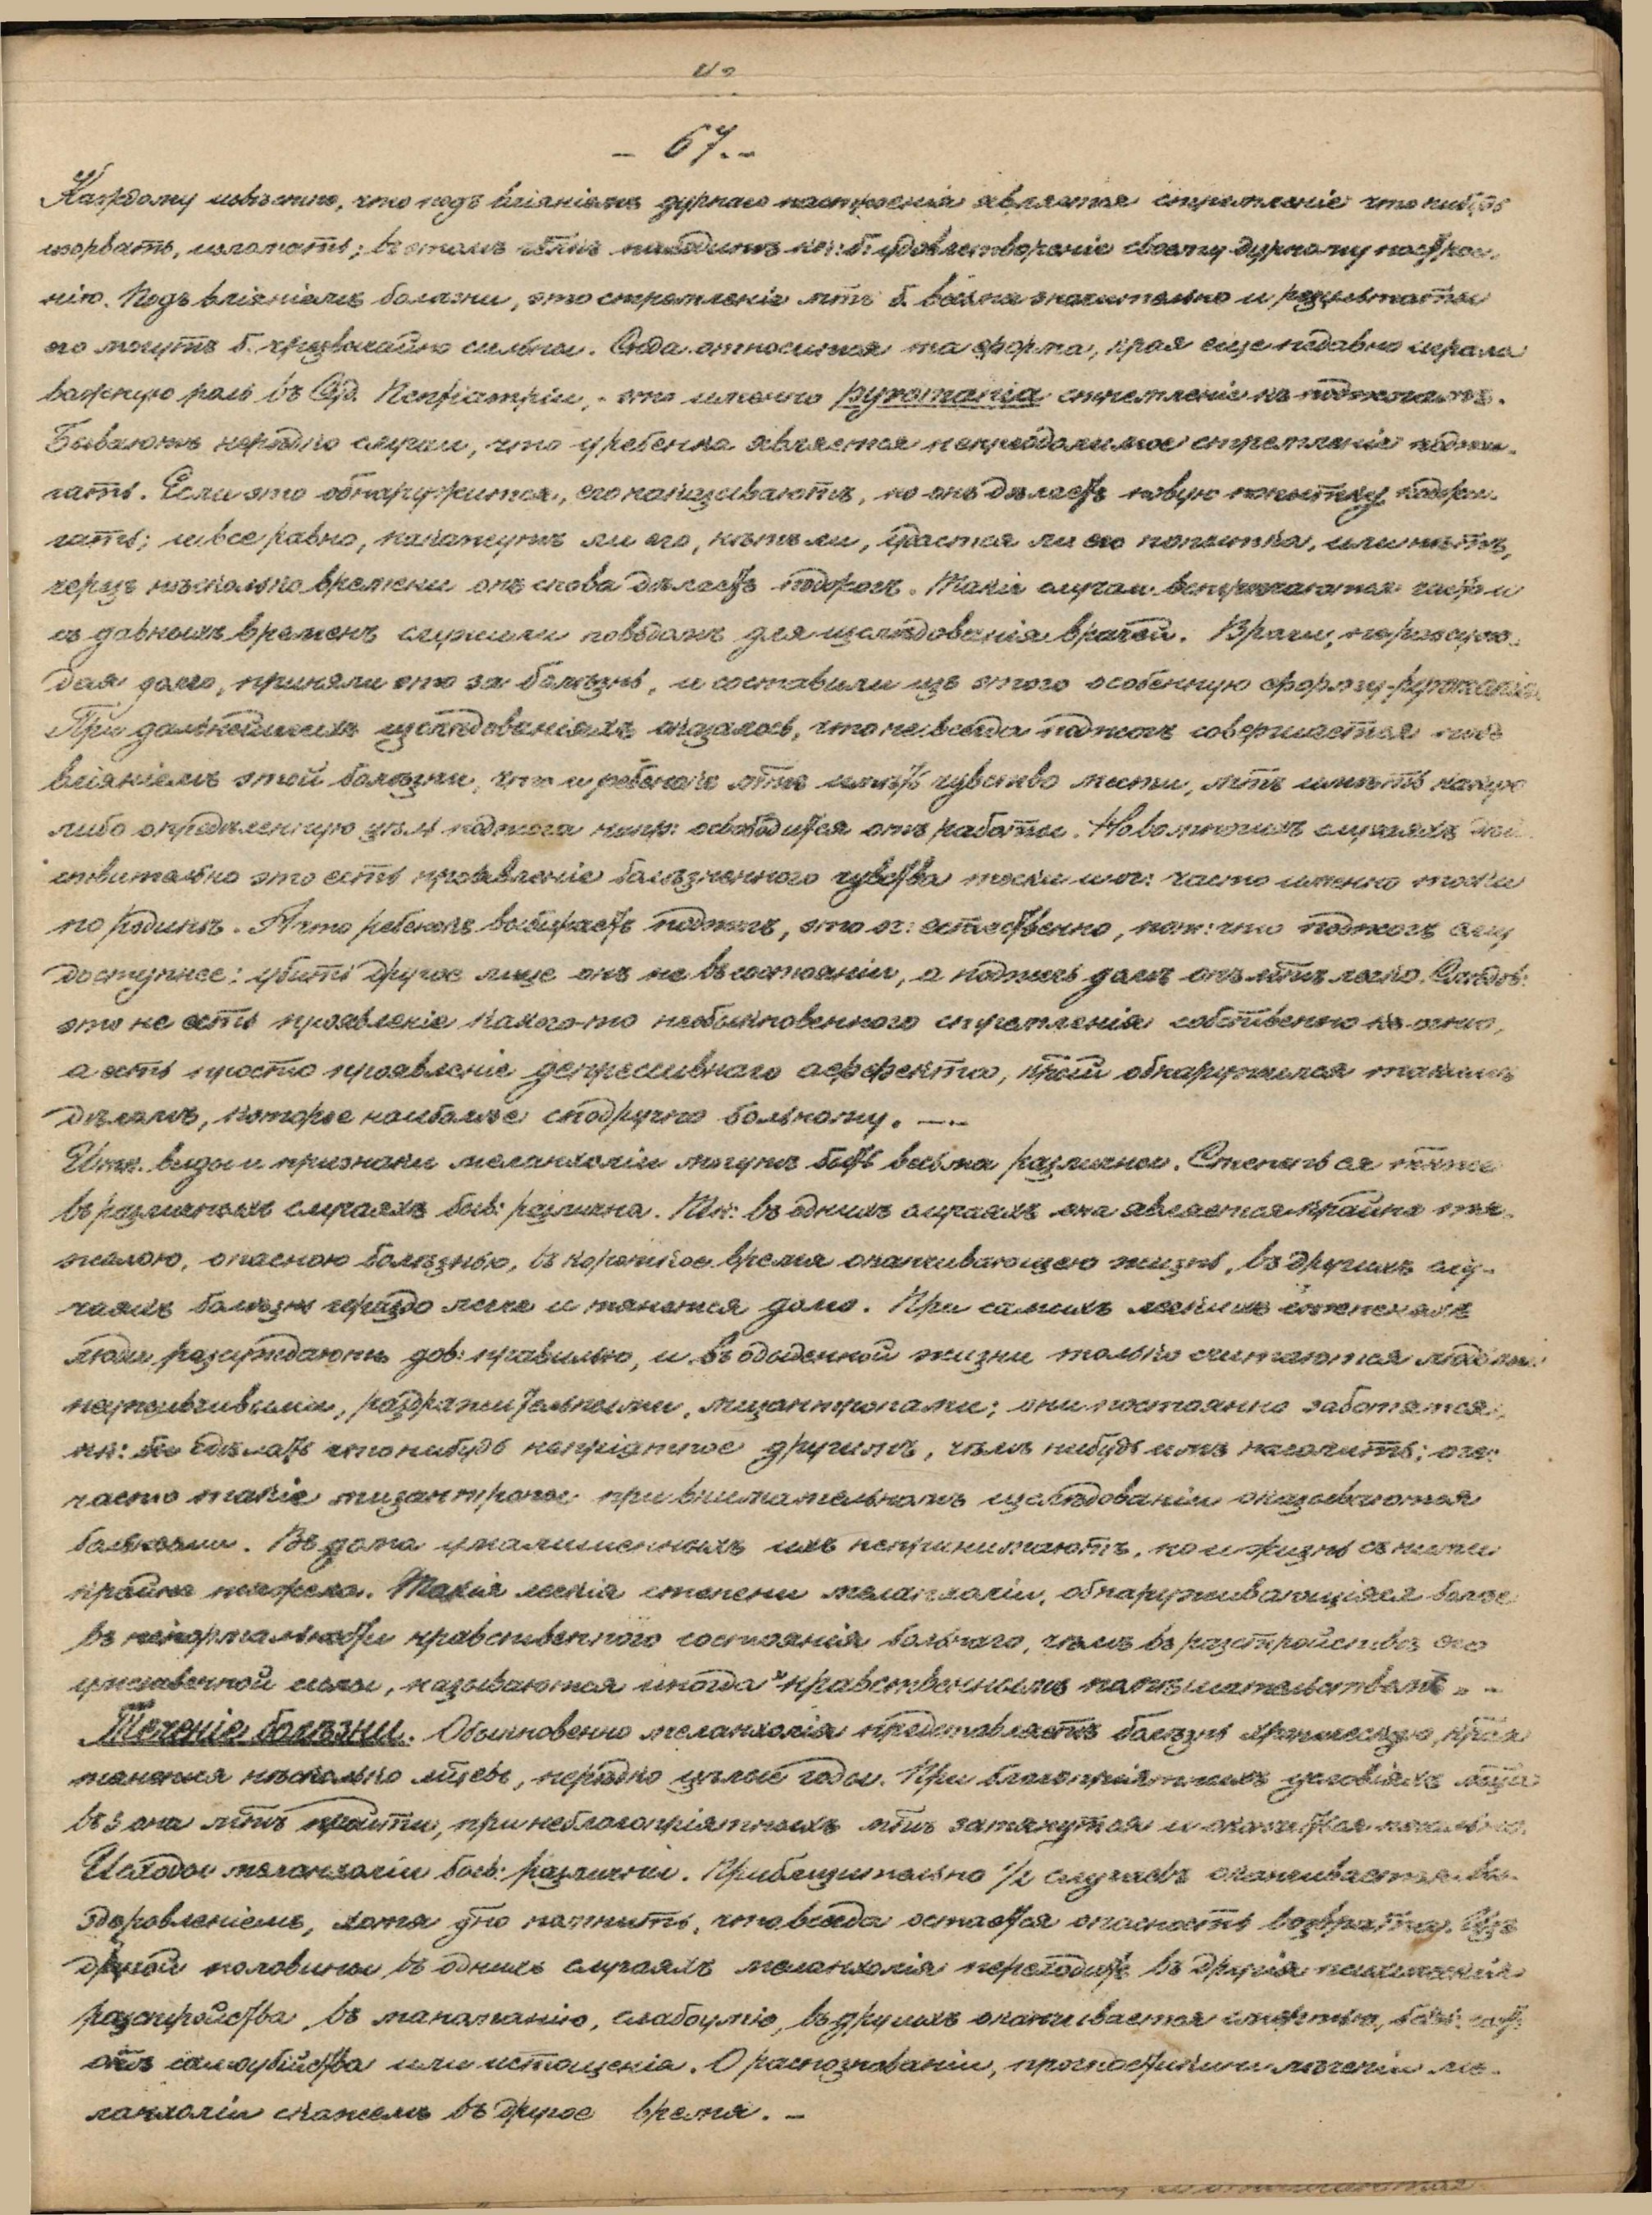 - 67. -
Каждому извѣстно, что подъ вліяніемъ дурнаго настроенія является стремленіе что нибудь
изорвать, изломать; въ этомъ находитъ удовлетвореніе своему дурному настрое-
нію. Подъ вліяніемъ болѣзни, это стремленіе мтъ б. весьма значительно и результаты
его могутъ б. чрезвычайно сильны. Сюда относится та форма, края еще недавно играла
важную роль въ Суд. Психіатріи, - это именно pyromania стремленіе къ поджогамъ.
Бываютъ нерѣдко случаи, что у ребенка является непреодолимое стремленіе поджи-
гать. Если это обнаружится, его наказываютъ, но онъ дѣлаетъ новую попытку поджи-
гать; и все равно, накажутъ ли его, нѣтъ ли, удастся ли его попытка, или нѣтъ,
черезъ нѣсколько времени онъ снова дѣлаетъ поджогъ. Такіе случаи встрѣчаются часто и
съ давнихъ временъ служили поводомъ для изслѣдованія врачей. Врачи,
долго, приняли это за болѣзнь, и составили изъ этого особенную форму-pyromania.
При дальнѣйшихъ изслѣдованіяхъ оказалось, что не всегда поджогъ совершается подъ
вліяніемъ этой болѣзни, что и ребенокъ мтъ имѣть чувство мести, мтъ имѣть какую
либо опредѣленную цѣль поджога напр: освободиться отъ работы. Но во многихъ случаяхъ дѣй-
ствительно это есть проявленіе болѣзненнаго чувства тоски часто именно тоски
по родинѣ. А что ребенокъ выбираетъ поджогъ, это оч: естественно, пот: что поджогъ ему
доступнѣе: убить другое лице онъ не въ состояніи, а поджечь домъ онъ мтъ легко. Слѣдов:
это не есть проявленіе какого-то необыкновеннаго стремленія собственно къ огню,
а есть просто проявленіе депрессивнаго аффекта, крый обнаружился такимъ
дѣломъ, которое наиболѣе сподручно больному. —
Итк. виды и признаки меланхоліи могутъ быть весьма различны. Степень ея также
въ различныхъ случаяхъ быв: различна. Тк: въ однихъ случаяхъ она является крайне тя-
желою, опасною болѣзнью, въ короткое время оканчивающею жизнь, въ другихъ слу-
чаяхъ болѣзнь гораздо легче и тянется долго. При самыхъ легкихъ степеняхъ
люди разсуждаютъ дов: правильно, и въ обыденной жизни только считаются людьми
неуживчивыми, раздражительными, мизантропами; они постоянно заботятся,
кк: бы сдѣлать что нибудь непріятное другимъ, чѣмъ нибудь имъ насолить; оч:
часто такіе мизантропы при внимательномъ изслѣдованіи оказываются
больными. Въ дома умалишенныхъ ихъ не принимаютъ, но и жизнь съ ними
крайне тяжела. Такія легкія степени меланхоліи, обнаруживающіяся болѣе
въ ненормальности нравственнаго состоянія больнаго, чѣмъ въ разстройствѣ его
умственной силы, называются иногда "нравственнымъ помѣшательствомъ". -
Теченіе болѣзни. Обыкновенно меланхолія представляетъ болѣзнь хроническую, края
тянется нѣсколько мцевъ, нерѣдко цѣлые годы. При благопріятныхъ условіяхъ мца
въ 3 она мтъ пройти, при неблагопріятныхъ мтъ затянуться и окончиться печально.
Исходы меланхоліи быв: различны. Приблизительно 1/2 случаевъ оканчивается вы-
здоровленіемъ, хотя дно помнить, что всегда остается опасность возврата. Изъ
другой половины въ однихъ случаяхъ меланхолія переходитъ въ другія психическія
разстройства, въ слабоуміе, въ другихъ оканчивается смертью,
отъ самоубійства или истощенія. О распознованіи, прогностикѣ и леченіи ме-
ланхоліи скажемъ въ другое время. -